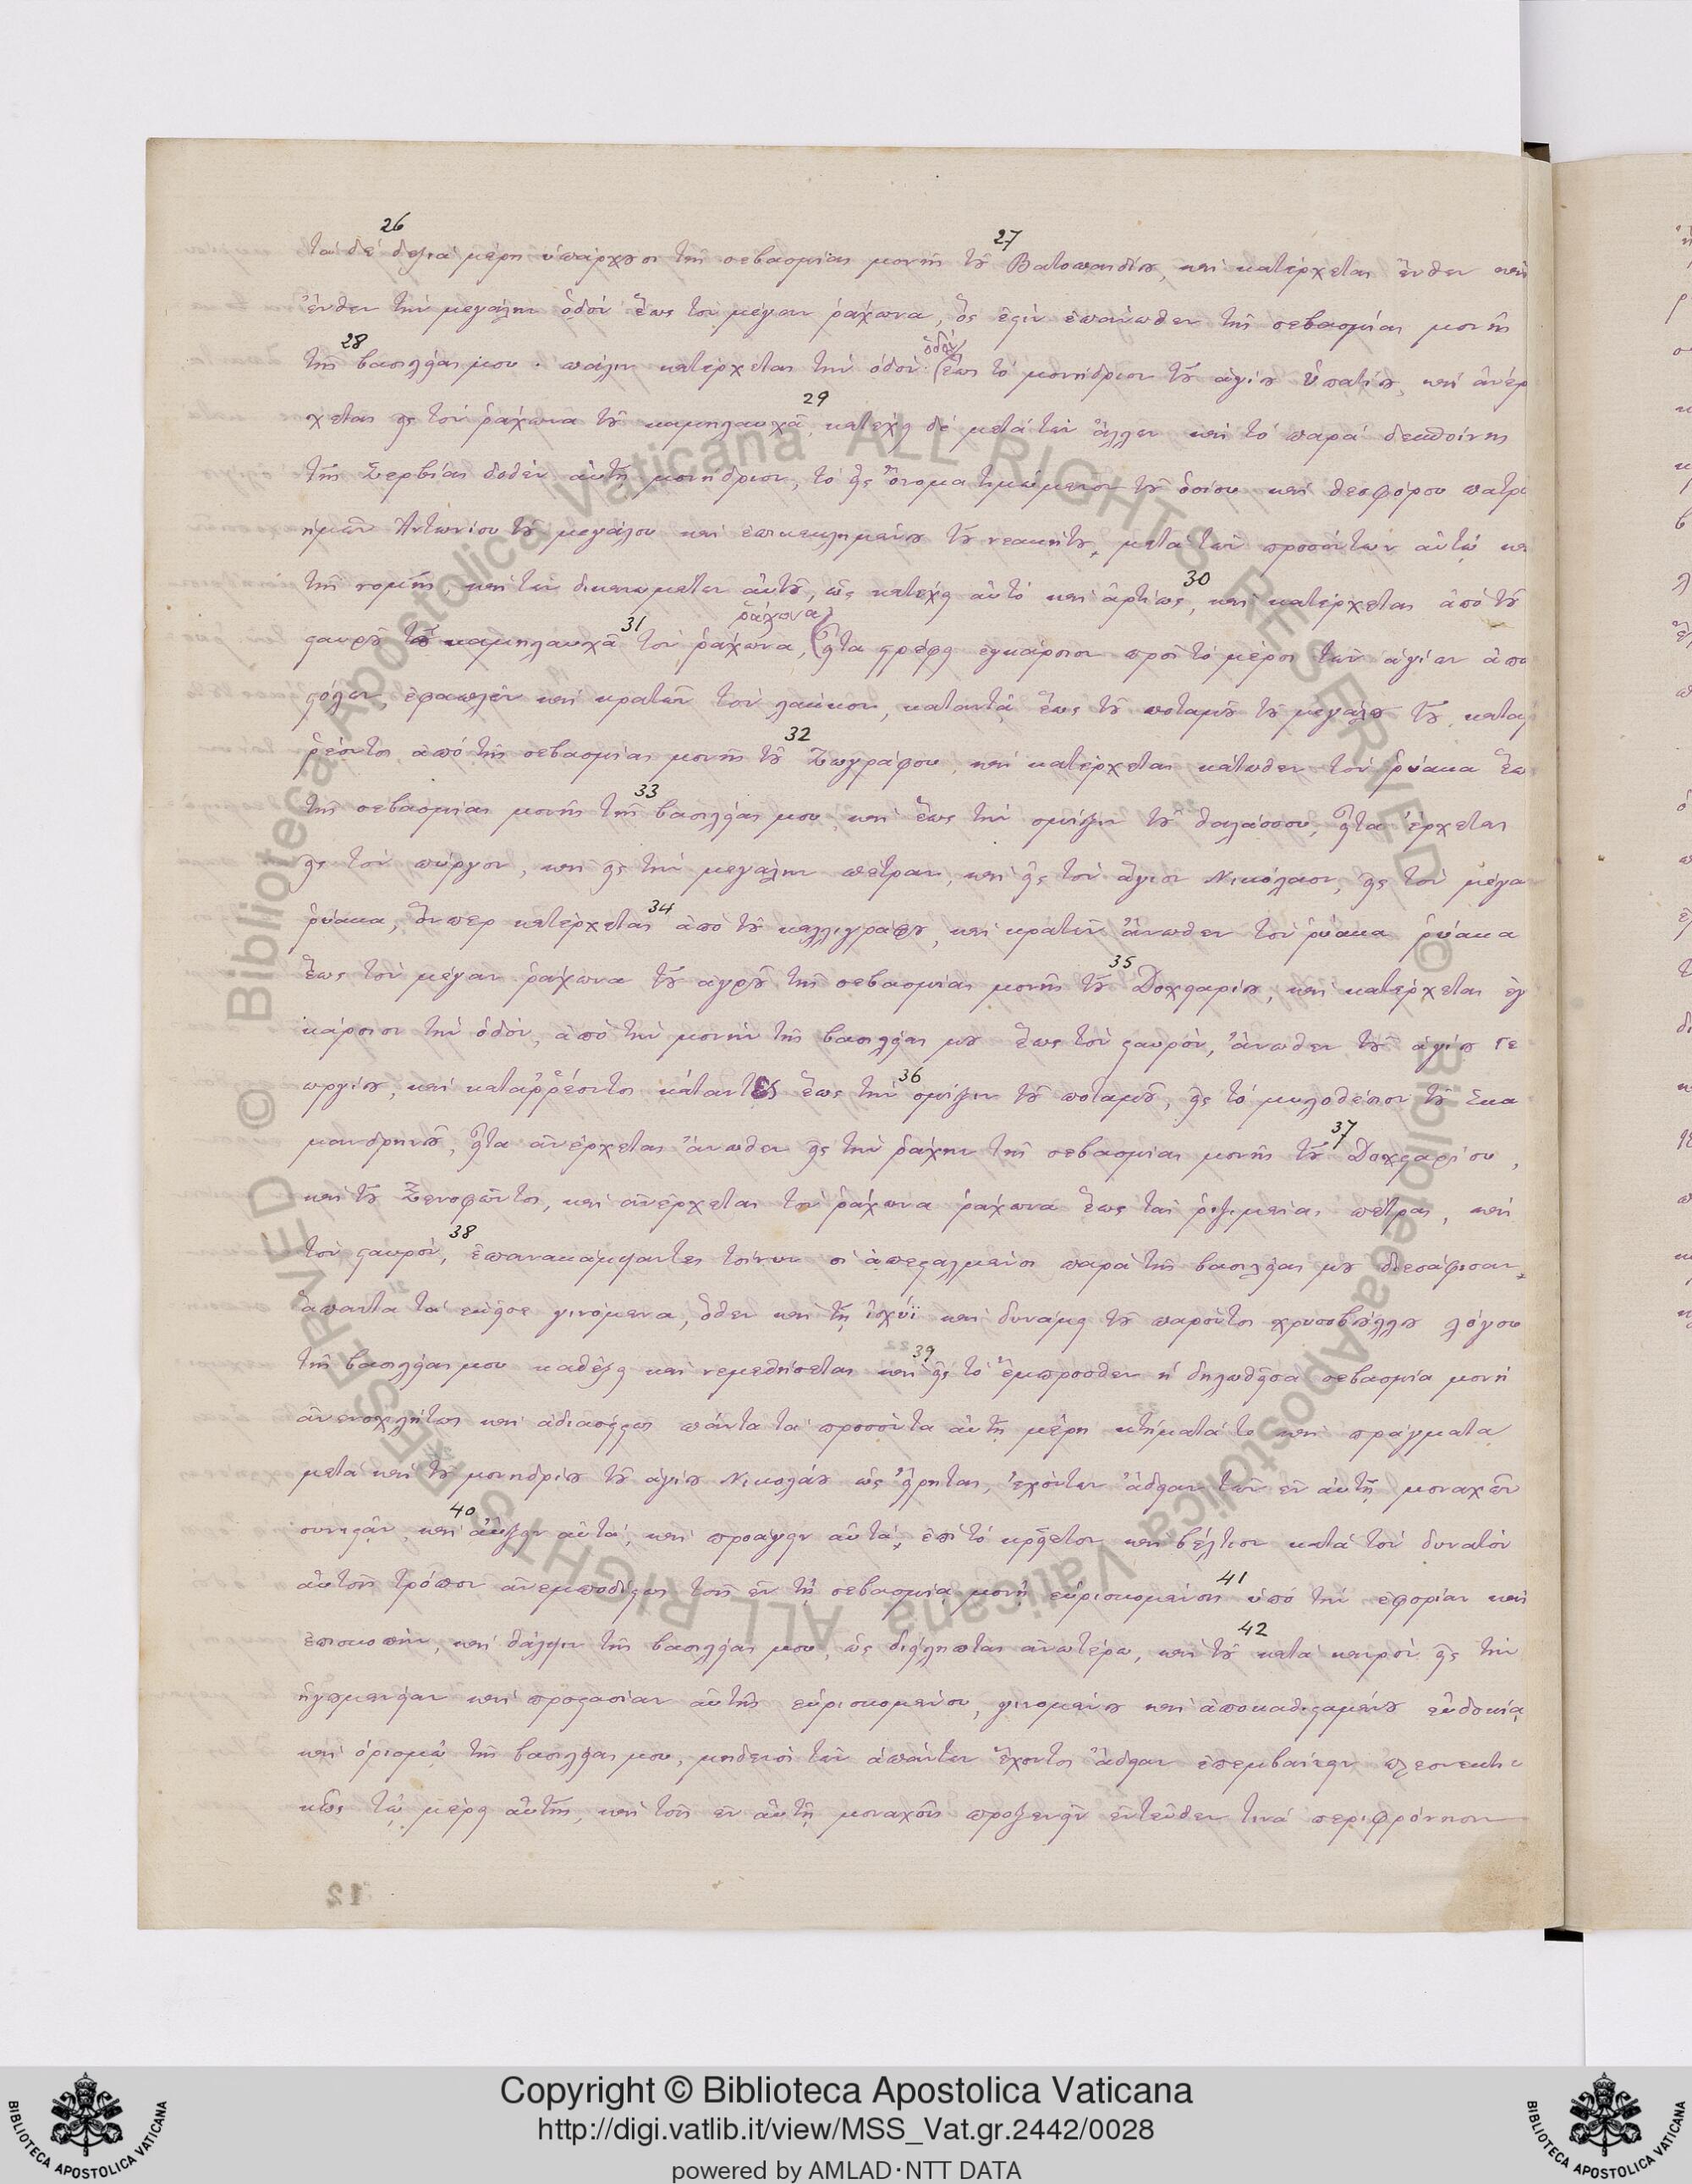 26 27
τὰ δὲ δεξιὰ μέρη ὑπάρχουσι τῆς σεβασμίας μονῆς τοῦ Βατοπαιδίου, καὶ κατέρχεται ἔνθεν καὶ
ἔνθεν τὴν μεγάλην ὁδὸν ἕως τὸν μέγαν ῥάχωνα, ὅς ἐστιν ἐπάνωθεν τῆς σεβασμίας μονῆς
28 ὁδὸν
τῆς βασιλείας μου. πάλιν κατέρχεται τὴν ὁδὸν (ἕως τὸ μονήδριον τοῦ ἁγίου Ὑπατίου, καὶ ἀνέρ
29
χεται εἰς τὸν ῥάχωνα τοῦ καμηλαυχᾶ, κατέχει δὲ μετὰ τῶν ἄλλων καὶ τὸ παρὰ δεσποίνης
τῆς Σερβίας δοθὲν αὐτῇ μονήδριον, τὸ εἰς ὄνομα τιμώμενον τοῦ ὁσίου καὶ θεοφόρου πατρὸ
ἡμῶν Ἀντωνίου τοῦ μεγάλου καὶ ἐπικεκλημένου τοῦ νεακήτου, μετὰ τῶν προσόντων αὐτῷ κα
30
τῆς νομῆς, καὶ τῶν δικαιωμάτων αὐτοῦ, ὡς κατέχει αὐτὸ καὶ ἀρτίως, καὶ κατέρχεται ἀπὸ τοῦ
31 ῥάχονα
σταυροῦ τοῦ καμηλαυχᾶ τὸν ῥάχωνα, (εἶτα στρέφει ἐγκάρσιον πρὸς τὸ μέρος τῶν ἁγίων ἀπο
στόλων ἐφαπλῶν καὶ κρατῶν τὸν λάκκον, καταντᾷ ἕως τοῦ ποταμοῦ τοῦ μεγάλου τοῦ καταρ
32
ῥέοντος ἀπὸ τῆς σεβασμίας μονῆς τοῦ Ζωγράφου, καὶ κατέρχεται κάτωθεν τὸν ῥύακα ἕω
33
τῆς σεβασμίας μονῆς τῆς βασιλείας μου, καὶ ἕως τὴν σμίξιν τοῦ θαλάσσου, εἶτα ἔρχεται
εἰς τὸν πύργον, καὶ εἰς τὴν μεγάλην πέτραν, καὶ εἰς τὸν ἅγιον Νικόλαον, εἰς τὸν μέγα
34
ῥύακα, ὅνπερ κατέρχεται ἀπὸ τοῦ καλλιγράφου, καὶ κρατῶν ἄνωθεν τὸν ῥύακα ῥύακα
35
ἕως τὸν μέγαν ῥάχωνα τοῦ ἀγροῦ τῆς σεβασμίας μονῆς τοῦ Δοχειαρίου, καὶ κατέρχεται ἐγ
κάρσιον τὴν ὁδὸν, ἀπὸ τὴν μονὴν τῆς βασιλείας μου ἕως τὸν σταυρὸν, ἄνωθεν τοῦ ἁγίου Γε
36
ωργίου, καὶ καταῤῥέοντος κάταντες ἕως τὴν σμίξιν τοῦ ποταμοῦ, εἰς τὸ μυλοθέσιον τοῦ Σκα
37
μανδρηνοῦ, εἶτα ἀνέρχεται ἄνωθεν εἰς τὴν ῥάχην τῆς σεβασμίας μονῆς τοῦ Δοχειαρίου,
καὶ τοῦ Ξενοφῶντος, καὶ ἀνέρχεται τὸν ῥάχωνα ῥάχωνα ἕως τὰς ῥιζιμαίας πέτρας, καὶ
38
τὸν σταυρὸν, ἐπανακάμψαντες τοίνυν οἱ ἀπεσταλμένοι παρὰ τῆς βασιλείας μου διεσάφισαν
ἅπαντα τὰ ἐκεῖσε γινόμενα, ὅθεν καὶ τῇ ἰσχύϊ καὶ δυνάμει τοῦ παρόντος χρυσοβούλλου λόγου
39
τῆς βασιλείας μου καθέξει καὶ νεμεθήσεται καὶ εἰς τὸ ἔμπροσθεν ἡ δηλωθεῖσα σεβασμία μονὴ
ἀνενοχλήτως καὶ ἀδιασείστως πάντα τὰ προσόντα αὐτῇ μέρη κτήματά τε καὶ πράγματα
μετὰ καὶ τοῦ μονηδρίου τοῦ ἁγίου Νικολάου ὡς εἴρηται, ἐχόντων ἄδειαν τῶν ἐν αὐτῇ μοναχῶν
40
συνιστᾶν, καὶ αὔξειν αὐτὰ, καὶ προάγειν αὐτὰ, ἐπὶ τὸ κρεῖττον καὶ βέλτιον κατὰ τὸν δυνατὸν
41
αὐτοῖς τρόπον ἀνεμποδίστως τοῖς ἐν τῇ σεβασμίᾳ μονῇ εὑρισκομένοις ὑπὸ τὴν ἐφορίαν καὶ
42
ἐπισκοπὴν, καὶ θάλψιν τῆς βασιλείας μου, ὡς διείληπται ἀνωτέρω, καὶ τοῦ κατὰ καιρὸν εἰς τὴν
ἡγουμενείαν καὶ προστασίαν αὐτῆς εὑρισκομένου, γινομένου καὶ ἀποκαθισταμένου εὐδοκίᾳ
καὶ ὁρισμῷ τῆς βασιλείας μου, μηδενὸς τῶν ἁπάντων ἔχοντος ἄδειαν ἐπεμβαίνειν πλεονεκτι
κῶς τῷ μέρει αὐτῆς, καὶ τοῖς ἐν αὐτῇ μοναχοῖς προξενεῖν ἐντεῦθεν τινὰ περιφρόνησιν
12
Copyright © Biblioteca Apostolica Vaticana
http://digi.vatlib.it/view/MSS_Vat.gr.2442/0028
powered by AMLAD·NTT DATA
BIBLIOTECA APOSTOLICA VATICANA
BIBLIOTECA APOSTOLICA VATICANA
© Biblioteca Apostolica Vaticana ALL RIGHTS RESERVED
© Biblioteca Apostolica Vaticana ALL RIGHTS RESERVED